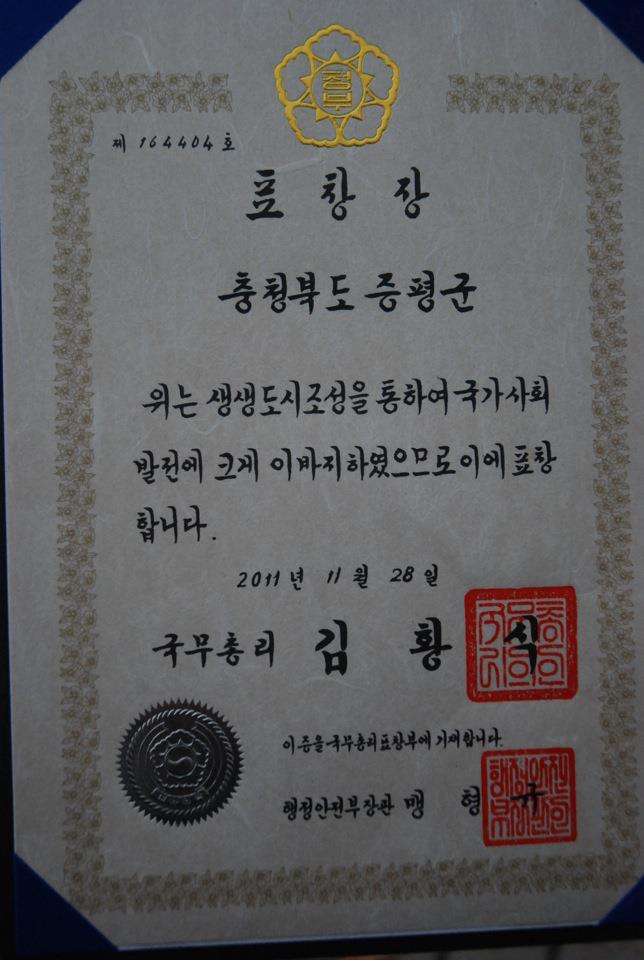 정부
제 164404 호
표 창 장
충청북도 증평군
위는 생생도시조성을 통하여 국가사회
발전에 크게 이바지하였으므로 이에 표창
합니다.
2011 년 11 월 28 일
국무총리 김 황 식
이 증을 국무총리표창부에 기재합니다.
행정안전부장관 맹 형 규